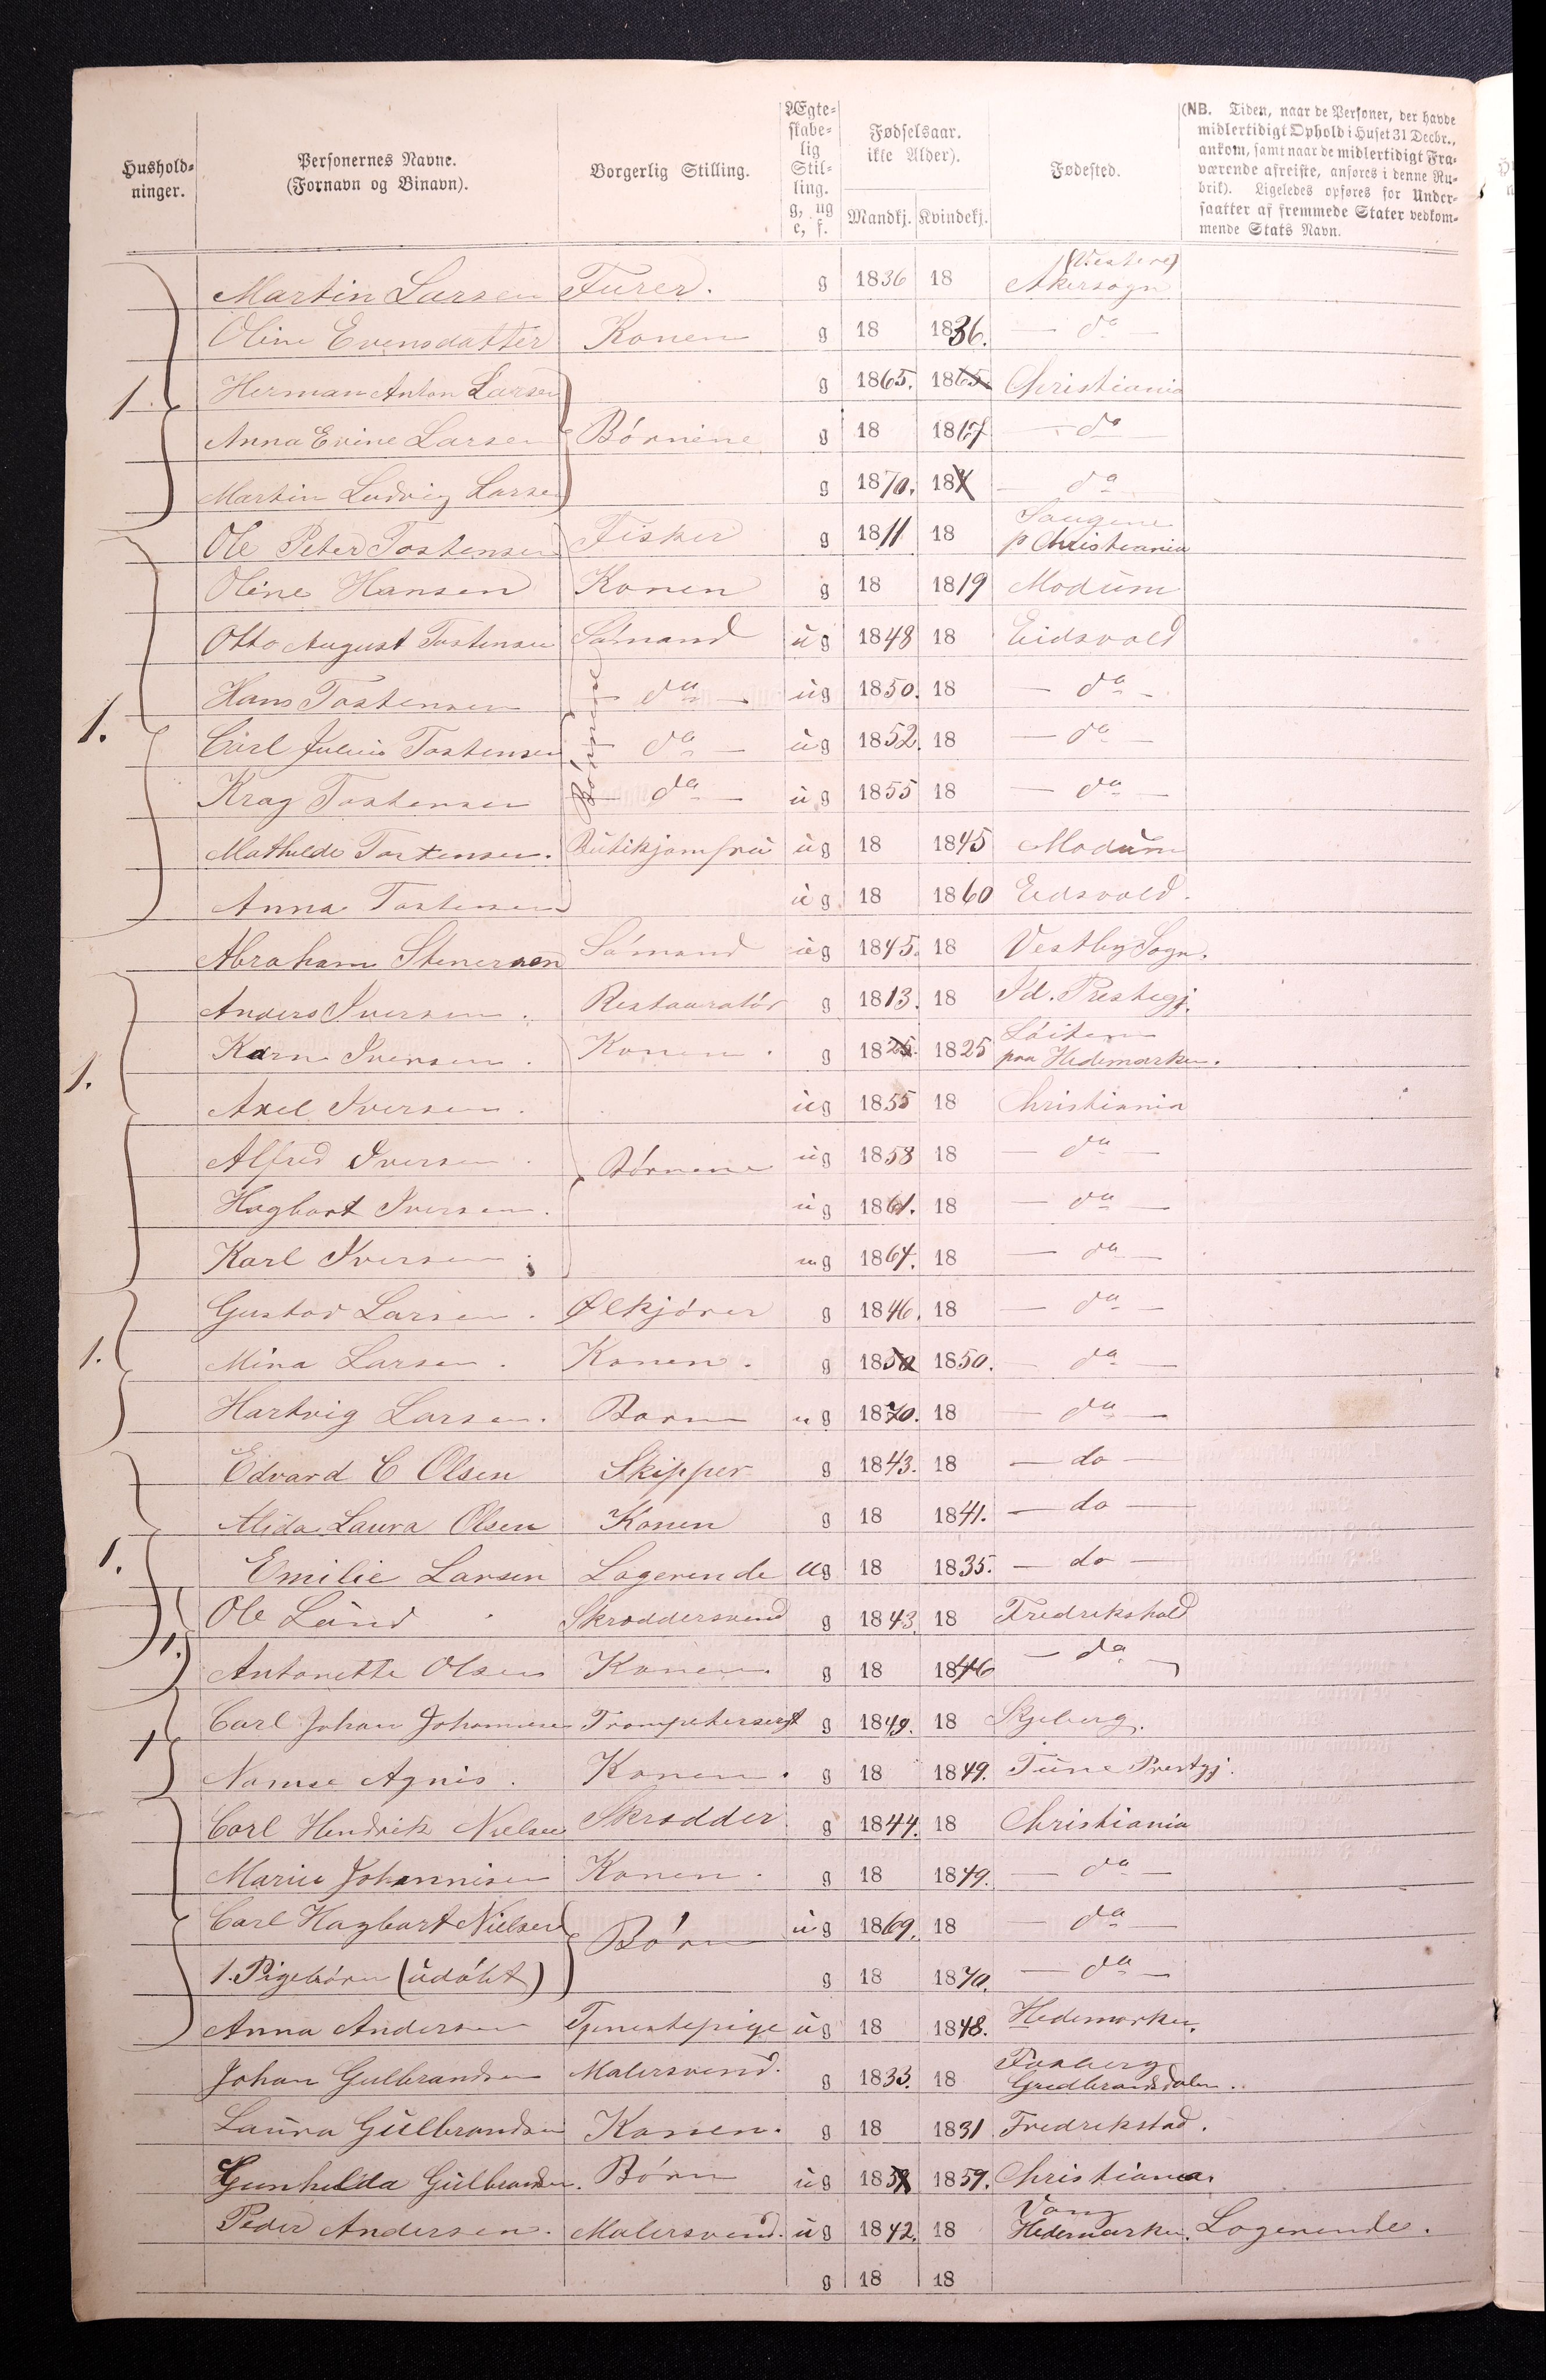 Hushold-
ninger.
Personernes Navne.
(Fornavn og Binavn).
Borgerlig Stilling.
Ægte-
skabe-
lig
Stil-
ling.
g, ug
e, f.
Fødselsaar.
ikke Alder).
Mandkj. Kvindekj.
Fødested.
(NB. Tiden, naar de Personer, der havde
midlertidigt Ophold i Huset 31 Decbr.,
ankom, samt naar de midlertidigt Fra-
værende afreiste, anføres i denne Ru-
brik). Ligeledes opføres for Under-
saatter af fremmede Stater vedkom-
mende Stats Navn.
(Vestre)
Martin Larsen Furer. g 1836 18 Akersogn
Oline Evensdatter Konen g 18 1836. — do —
1 Herman Anton Larsen g 1865. 1865 Christiania
Anna Evine Larsen Børnene g 18 1867 — do
Martin Ludvig Larsen g 1870. 18 — do —
Ole Peter Tostensen Fisker g 1811 18 Saugene
p Christiania
Oline Hansen Konen g 18 1819 Modum
Otto August Tostensen Sømand ug 1848 18 Eidsvold
Hans Tostensen — do — ug 1850. 18 — do —
1. Carl Julius Tostensen — do — ug 1852. 18 — do —
Krag Tostensen — do — ug 1855 18 — do —
Mathilde Tostensen. Butikjomfru ug 18 1845 Modum
Anna Tostensen ug 18 1860 Eidsvold.
Abraham Stenersen Sømand ug 1845. 18 Vestby Sogn.
Anders Iversen. Restauratør g 1813. 18 Id. Prestegj.
Karn Iversen. Konen. g 1825. 1825 Løiten
paa Hedemarken.
1. Axel Iversen. ug 1855 18 Christiania
Alfred Iversen. Børnene ug 1858 18 — do —
Hagbart Iversen. ug 1861. 18 — do —
Karl Iversen ug 1864. 18 — do —
Gustav Larsen. Ølkjører g 1846. 18 — do —
1. Mina Larsen. Konen. g 1850 1850. — do —
Hartvig Larsen. Barn ug 1870. 18 — do —
Edvard C Olsen Skipper g 1843. 18 — do —
Alida Laura Olsen Konen g 18 1841. — do —
1. Emilie Larsen Logerende ug 18 1835. — do —
Ole Lund Skræddersvend g 1843. 18 Fredrikshald
1. Antonette Olsen Konen. g 18 1846 — do —
Carl Johan Johannesen Trompetersergt g 1849. 18 Skjeberg.
1 Agnis. Konen. g 18 1849. Tune Prestgj.
Carl Hendrik Nielsen Skrædder g 1844. 18 Christiania
Marie Johannisen Konen. g 18 1849. — do —
Carl Hagbart Nielsen Børn ug 1869. 18 — do —
1. Pigebørn (udøbt) g 18 1870. — do —
Anna Andersen Tjenestepige ug 18 1848. Hedemarken.
Johan Gulbrandsen Malersvend. g 1833. 18
Gudbrandsdalen.
Laura Gulbrandsen Konen. g 18 1831 Fredrikstad.
Gunhilda Gulbrandsen. Børn ug 1859 1859. Christiania.
Peder Andersen. Malersvend. ug 1842. 18 Vang
Hedemarken. Logerende.
g 18 18